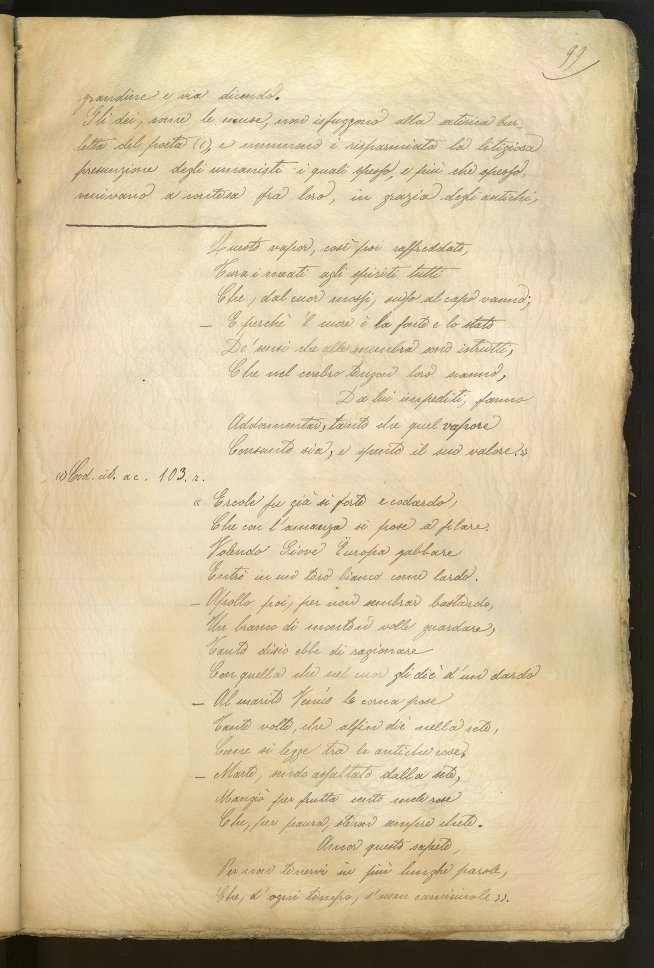 99
grandine e via dicendo.
Gli dei, come le muse, non isfuggono alla satirica bur-
letta del poeta (1), e nemmeno è risparmiata la litigiosa
presunzione degli umanisti i quali spesso, e più che spesso,
venivano a contesa fra loro, in grazia degli antichi,
Questo vapor, così poi raffreddato,
Tura i meati agli spiriti tutti
Che, dal cuor mossi, suso al capo vanno;
— E perchè 'l cuore è la fonte e lo stato
De' sensi che alle membra sono istrutti,
Che nel cerebro tengon loro scanno,
Da lui impediti, fanno
Addormentar, tanto che quel vapore
Consunto sia, e spento il suo valore.»
(1) Cod. cit. a c. 103. r.
« Ercole fu già sì forte e codardo,
Che con l'amanza si pose a filare.
Volendo Giove Europa gabbare
Entrò in un toro bianco come lardo.
— Apollo poi, per non sembrar bastardo,
Un branco di montoni volle guardare,
Tanto disio ebbe di ragionare
Con quella che nel cuor gli diè d'un dardo
— Al marito Venus le corna pose
Tante volte, che alfin diè nella rete,
Come si legge tra le antiche cose.
— Marte, sendo assaltato dalla sete,
Mangiò per frutta cento mele rose
Che, per paura, steron sempre chete.
Amor questo sapete
Per non tenervi in più lunghe parole,
Che, d'ogni tempo, s'usan camiciuole ».